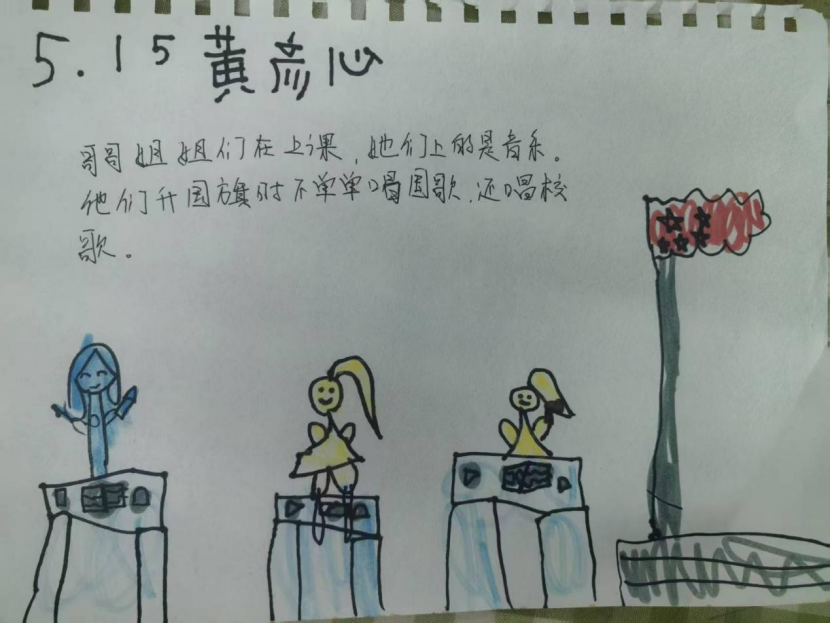 5.15 黄彦心
哥哥姐姐们在上课,她们上的是音乐。
他们升国旗时不单单唱国歌,还唱校
歌。